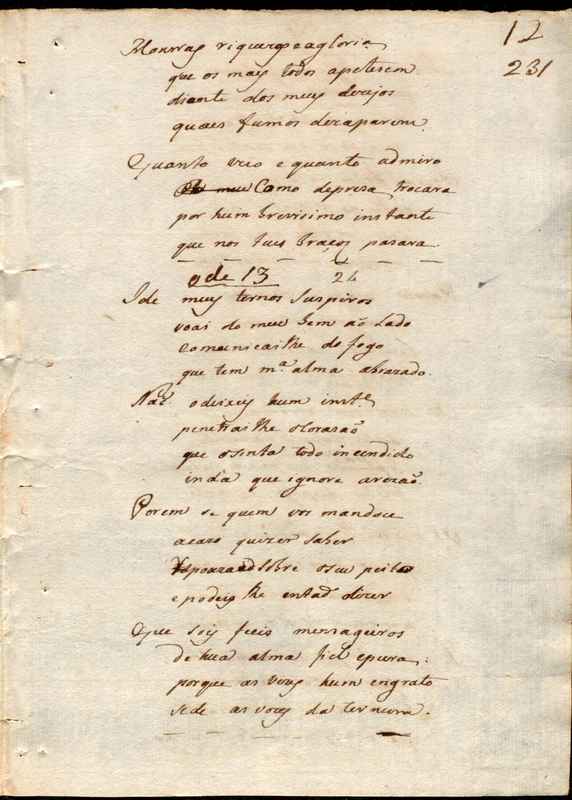 12
231
Honras riquezas e a gloria
que os mais todos apetecem
diante dos meus dezejos
quaes fumos dezaparem.
Quanto vejo e quanto admiro
meu Como depresa trocara
por hum brevisimo instante
que nos teus braços pasara
ode 13 24
Ide meus ternos Suspiros
voai do meu bem ao lado
comunicailhe do fogo
que tem mª alma abrazado.
Naõ odeixeis hum inste
penetrailhe o Corasaõ
que osinta todo incendido
inda que ignore arezaõ.
Porem se quem vos manda
acazo quizer saber
sobre oseu peito
e podeis lhe entaõ dizer
Que sois fieis mensageiros
de hua alma fiel epura:
porque as vezes hum engrato
sede as vozes da ternura.